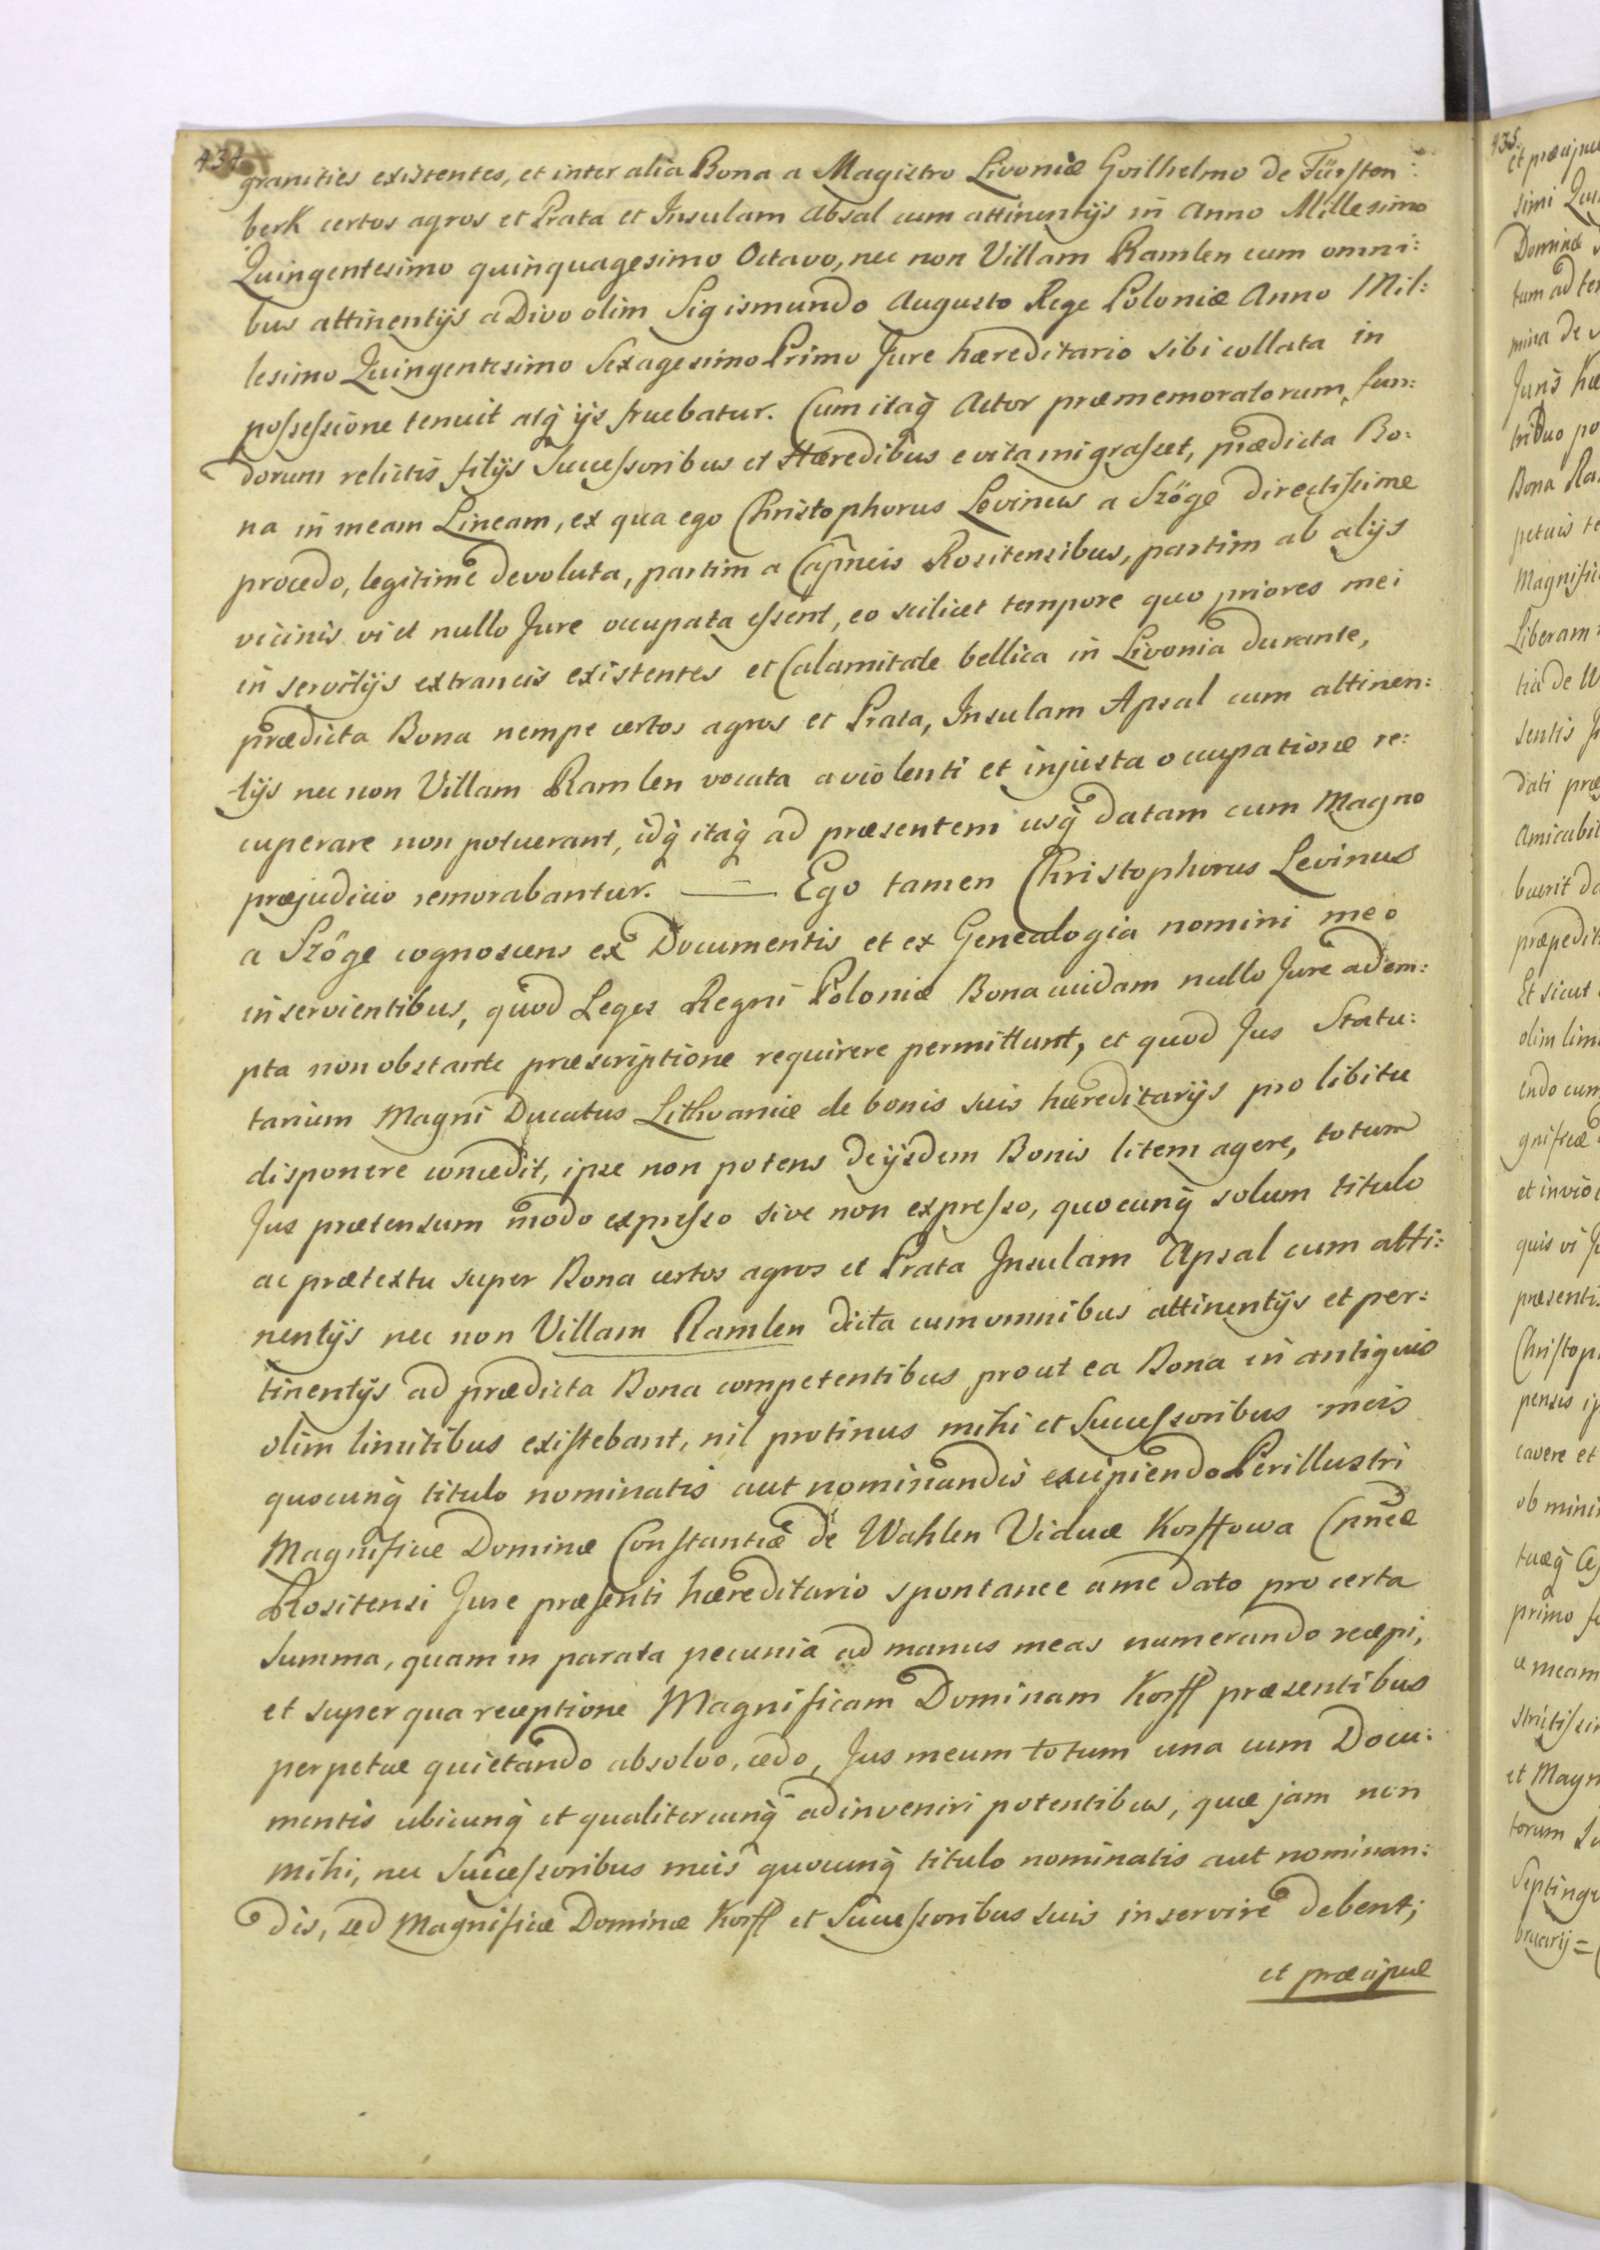 434
granities existentes, et inter alia Bona a Magistro Livoniæ Gvilhelmo de Fürsten:
berk certos agros et Prata et Insulam Absal cum attinentijs in Anno Millesimo
Quingentesimo quinquagesimo Octavo, nec non Villam Ramlen cum omni:
bus attinentijs a Divo olim Sigismundo Augusto Rege Poloniæ Anno Mil:
lesimo Quingentesimo Sexagesimo Primo Jure hæreditario sibi collata in
possessione tenuit atq̃ ijs fruebatur. Cum itaq̃ Actor præmemoratorum fun:
dorum relictis filijs Successoribus et Hæredibus e vita migrasset, prædicta Bo:
na in meam Lineam, ex qua ego Christophorus Levinus a Szöge directissime
procedo, legitime devoluta, partim a Capneis Rositensibus, partim ab alijs
vicinis vi et nullo Jure occupata essent, eo scilicet tempore quo priores mei
in servitijs extraneis existentes et Calamitate bellica in Livonia durante,
prædicta Bona nempe certos agros et Prata, Insulam Apsal cum attinen:
tijs nec non Villam Ramlen vocata a violenti et injusta occupatione re:
cuperare non potuerant, idq̃ itaq̃ ad præsentem usq̃ datam cum Magno
præjudicio remorabantur. — Ego tamen Christophorus Levinus
a Szöge cognoscens ex Documentis et ex Genealogia nomini meo
inservientibus, quod Leges Regni Poloniæ Bona cuidam nullo Jure adem:
pta non obstante præscriptione requirere permittunt, et quod Jus Statu:
tarium Magni Ducatus Lithvaniæ de bonis suis hæreditarijs pro libitu
disponere concedit, ipse non potens de ijsdem Bonis litem agere, totum
Jus prætensum modo expresso sive non expresso, quocunq̃ solum titulo
ac prætextu super Bona certos agros et Prata Insulam Apsal cum atti:
nentijs nec non Villam Ramlen dicta cum omnibus attinentijs et per:
tinentijs ad prædicta Bona competentibus prout ea Bona in antiquis
olim limitibus existebant, nil protinus mihi et Successoribus meis
quocunq̃ titulo nominatis aut nominandis excipiendo Perillustri
Magnificæ Dominæ Constantiæ de Wahlen Viduæ Korffowa Cnneæ
Rositensi Jure præsenti hæreditario spontanee a me dato pro certa
Summa, quam in parata pecunia ad manus meas numerando recepi,
et super qua receptione Magnificam Dominam Korff præsentibus
perpetue quietando absolvo, cedo, Jus meum totum una cum Docu:
mentis ubicunq̃ et qualitercunq̃ adinveniri potentibus, quæ jam non
mihi, nec Successoribus meis quocunq̃ titulo nominatis aut nominan:
dis, sed Magnificæ Dominæ Korff et Successoribus suis inservire debent;
et præcipue
435
et præcipue
simi
Dominæ
tum ad
mina de
Juris
triduo
Bona
petuis
Liberam
tia de
sentis
dati
Et sicut
olim
endo cum
gnificæ
quis vi
cavere et
primo
et Magn
torum